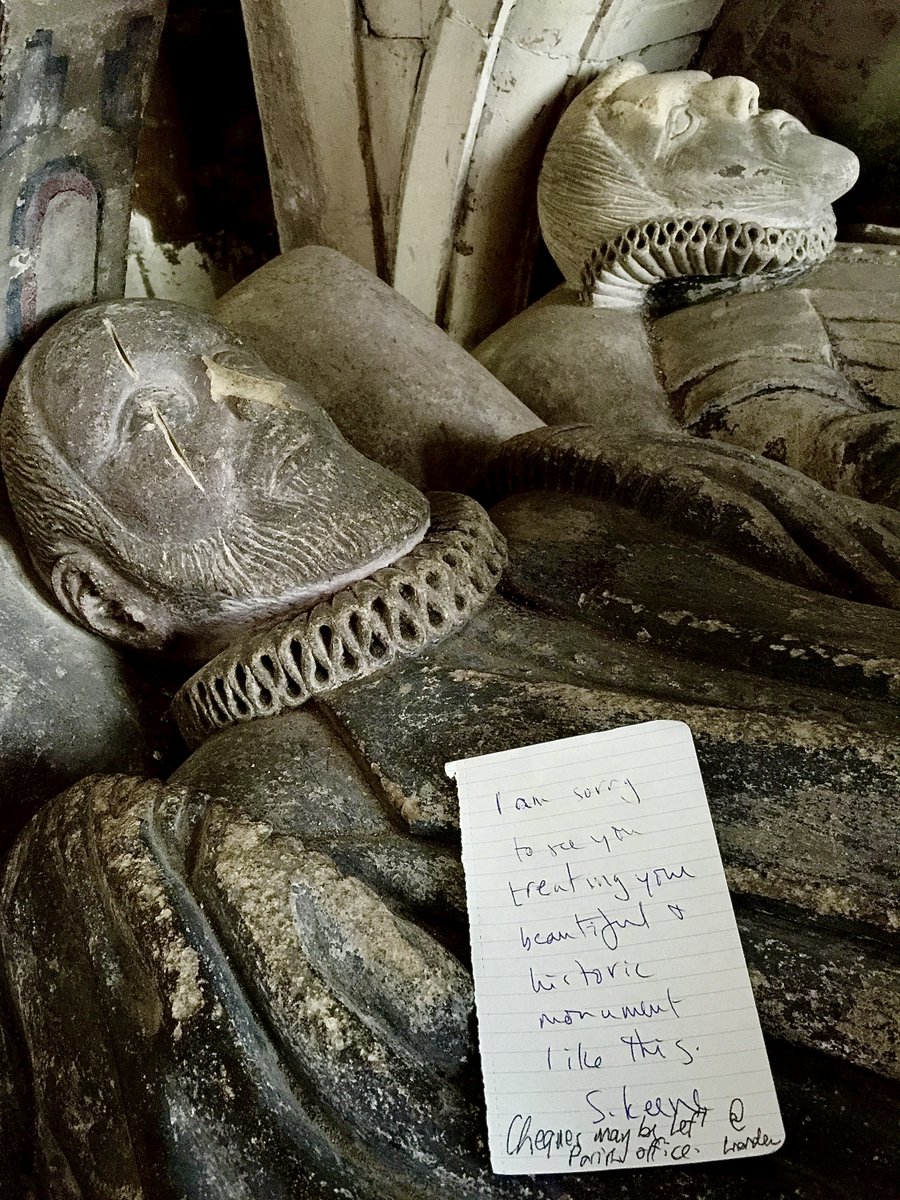 I am sorry
to see you
treating your
beautiful &
historic
monument
like this.
S. Keene
Cheques may be left @
Parish office. Warden